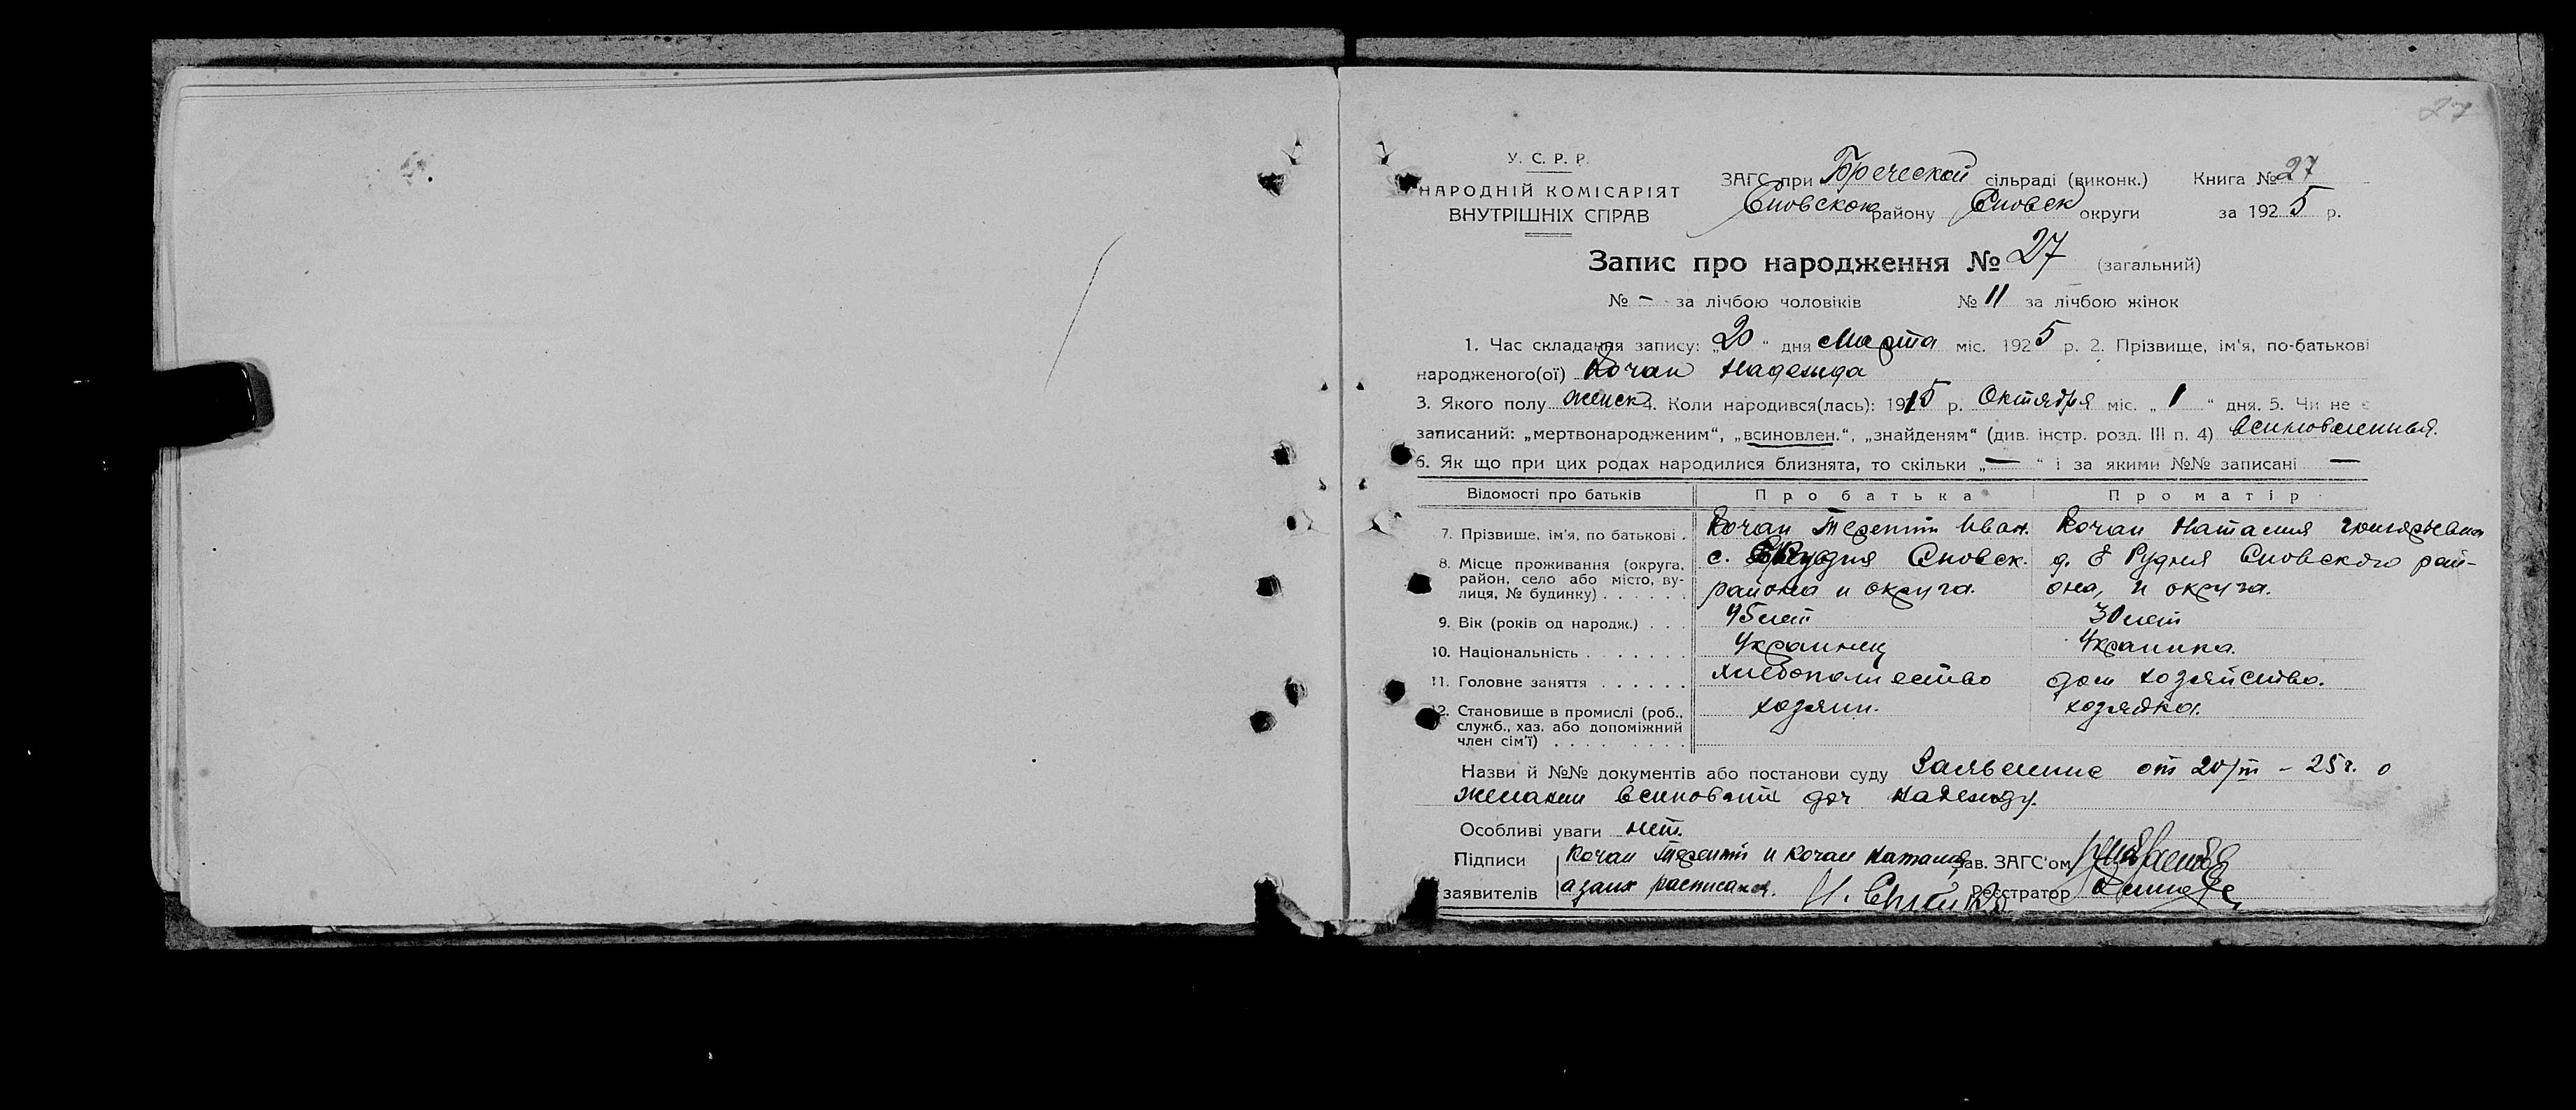 27
У. С. Р. Р.
НАРОДНІЙ КОМІСАРІЯТ
ВНУТРІШНІХ СПРАВ
ЗАГС при Бреческой сільраді (виконк.) Книга № 27
Сновского району Сновск округи за 1925 р.
Запис про народження № 27 (загальний)
№ — за лічбою чоловіків № 11 за лічбою жінок
1. Час складання запису: „20“ дня Марта міс. 1925 р. 2. Прізвище, ім'я, по-батькові
народженого(ої) Кочан Надежда
3. Якого полу женск 4. Коли народився(лась): 1915 р. Октября міс. „1“ дня. 5. Чи не є
записаний: „мертвонародженим“, „всиновлен.“, „знайденям“ (див. інстр. розд. III п. 4) всиновленная.
6. Як що при цих родах народилися близнята, то скільки „—“ і за якими №№ записані —
Відомості про батьків Про батька Про матір
7. Прізвище, ім'я, по батькові . Кочан Терентий Иван. Кочан Наталия Григорьевна
8. Місце проживання (округа, район, село або місто, вулиця, № будинку) . . . . . . с. Рудня Сновск. района и округа. д. Рудня Сновского района, и округа.
9. Вік (років од народж.) . . . 45 лет 30 лет
10. Національність . . . . . . . Украинец Украинка.
11. Головне заняття . . . . . . хлебопашество дом хозяйство.
12. Становище в промислі (роб., служб., хаз. або допоміжний член сім'ї) . . . . . . . . хозяин. хозяйка.
Назви й №№ документів або постанови суду Заявление от 20/III – 25 г. о
желании всиновить доч Надежду.
Особливі уваги нет.
Підписи Кочан Терентий и Кочан Наталия Зав. ЗАГС'ом
заявителів а за них расписался. Реєстратор